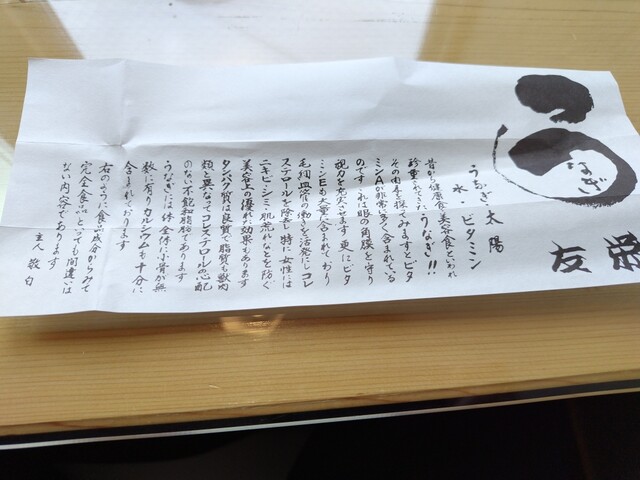 うなぎ
友栄
うなぎ太陽
水・ビタミン
昔から健康食、美容食といわれ
珍重されてきたうなぎ!!
その内容を探ってみますとビタ
ミンAが非常に多く含まれている
のです これは眼の角膜を守り
視力を充実させます 更にビタ
ミンEも大量に含まれており
毛細血管の働きを活発にしコレ
ステロールを除去し特に女性には
ニキビ、シミ、肌荒れなどを防ぐ
美容上の優れた効果もあります
タンパク質は良質で脂質も獣肉
類と異なってコレステロールの心配
のない不飽和脂肪であります
うなぎには体全体に小骨が無
数に有りカルシウムも十分に
含まれております
右のように食品成分からみて
完全食品といっても間違いは
ない内容であります
主人 敬白